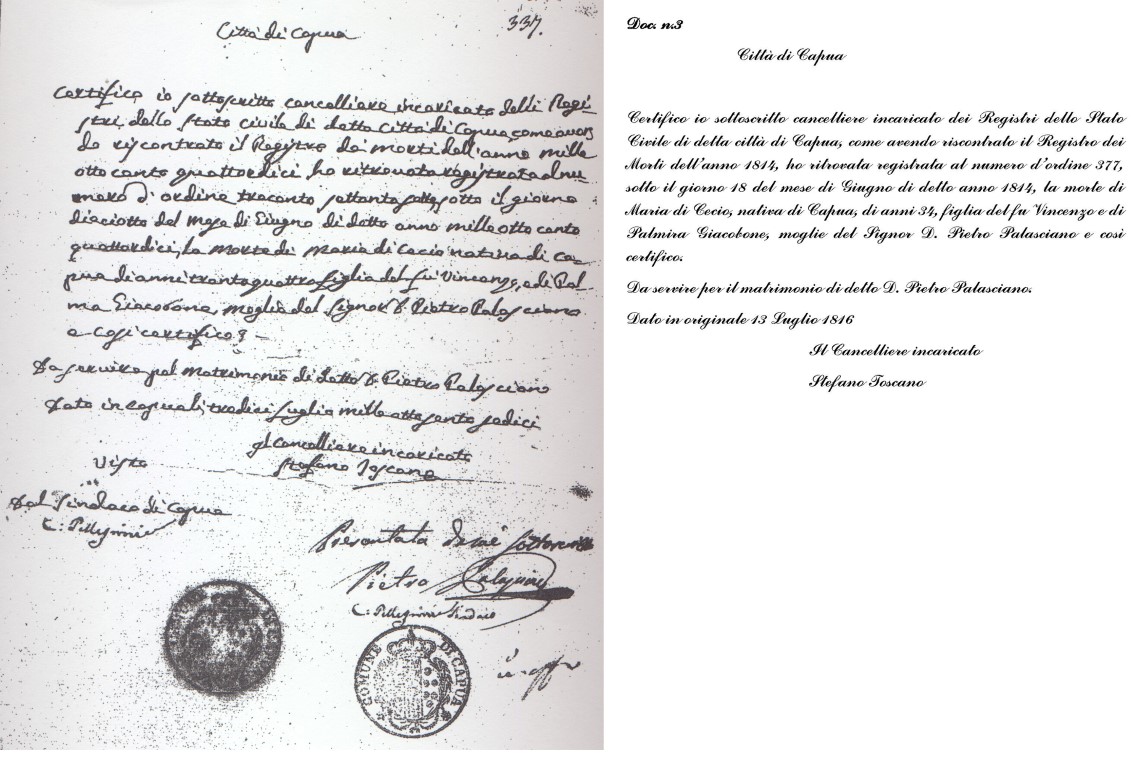 337.
Città di Capua
Certifico io sottoscritto cancelliere incaricato delli Regi-
stri dello stato civile di detta Città di Capua, come aven
do riscontrato il Registro de morti dell'anno mille
otto cento quattordici, ho ritrovata registrata al nu
mero d'ordine trecento settanta sette, sotto il giorno
dieciotto del mese di Giugno di detto anno mille otto cento
quattordici, la morte di Maria di Cecio nativa di Ca-
pua di anni trentaquattro figlia del fu Vincenzo, e di Pal-
ma Giacobone, moglie del Signor D. Pietro Palasciano
e così certifico
Da servire pel matrimonio di detto D. Pietro Palasciano
Dato in Capua li tredici luglio mille ottocento sedici
Il Cancelliere incaricato
Stefano Toscano
Visto
Dal Sindaco di Capua
C: Pellegrini
Presentata da me
Pietro
C: Pellegrini Sindaco
COMUNE DI CAPUA
Doc. n.3
Città di Capua
Certifico io sottoscritto cancelliere incaricato dei Registri dello Stato
Civile di detta città di Capua, come avendo riscontrato il Registro dei
Morti dell'anno 1814, ho ritrovata registrata al numero d'ordine 377,
sotto il giorno 18 del mese di Giugno di detto anno 1814, la morte di
Maria di Cecio, nativa di Capua, di anni 34, figlia del fu Vincenzo e di
Palmira Giacobone, moglie del Signor D. Pietro Palasciano e così
certifico.
Da servire per il matrimonio di detto D. Pietro Palasciano.
Dato in originale 13 Luglio 1816
Il Cancelliere incaricato
Stefano Toscano